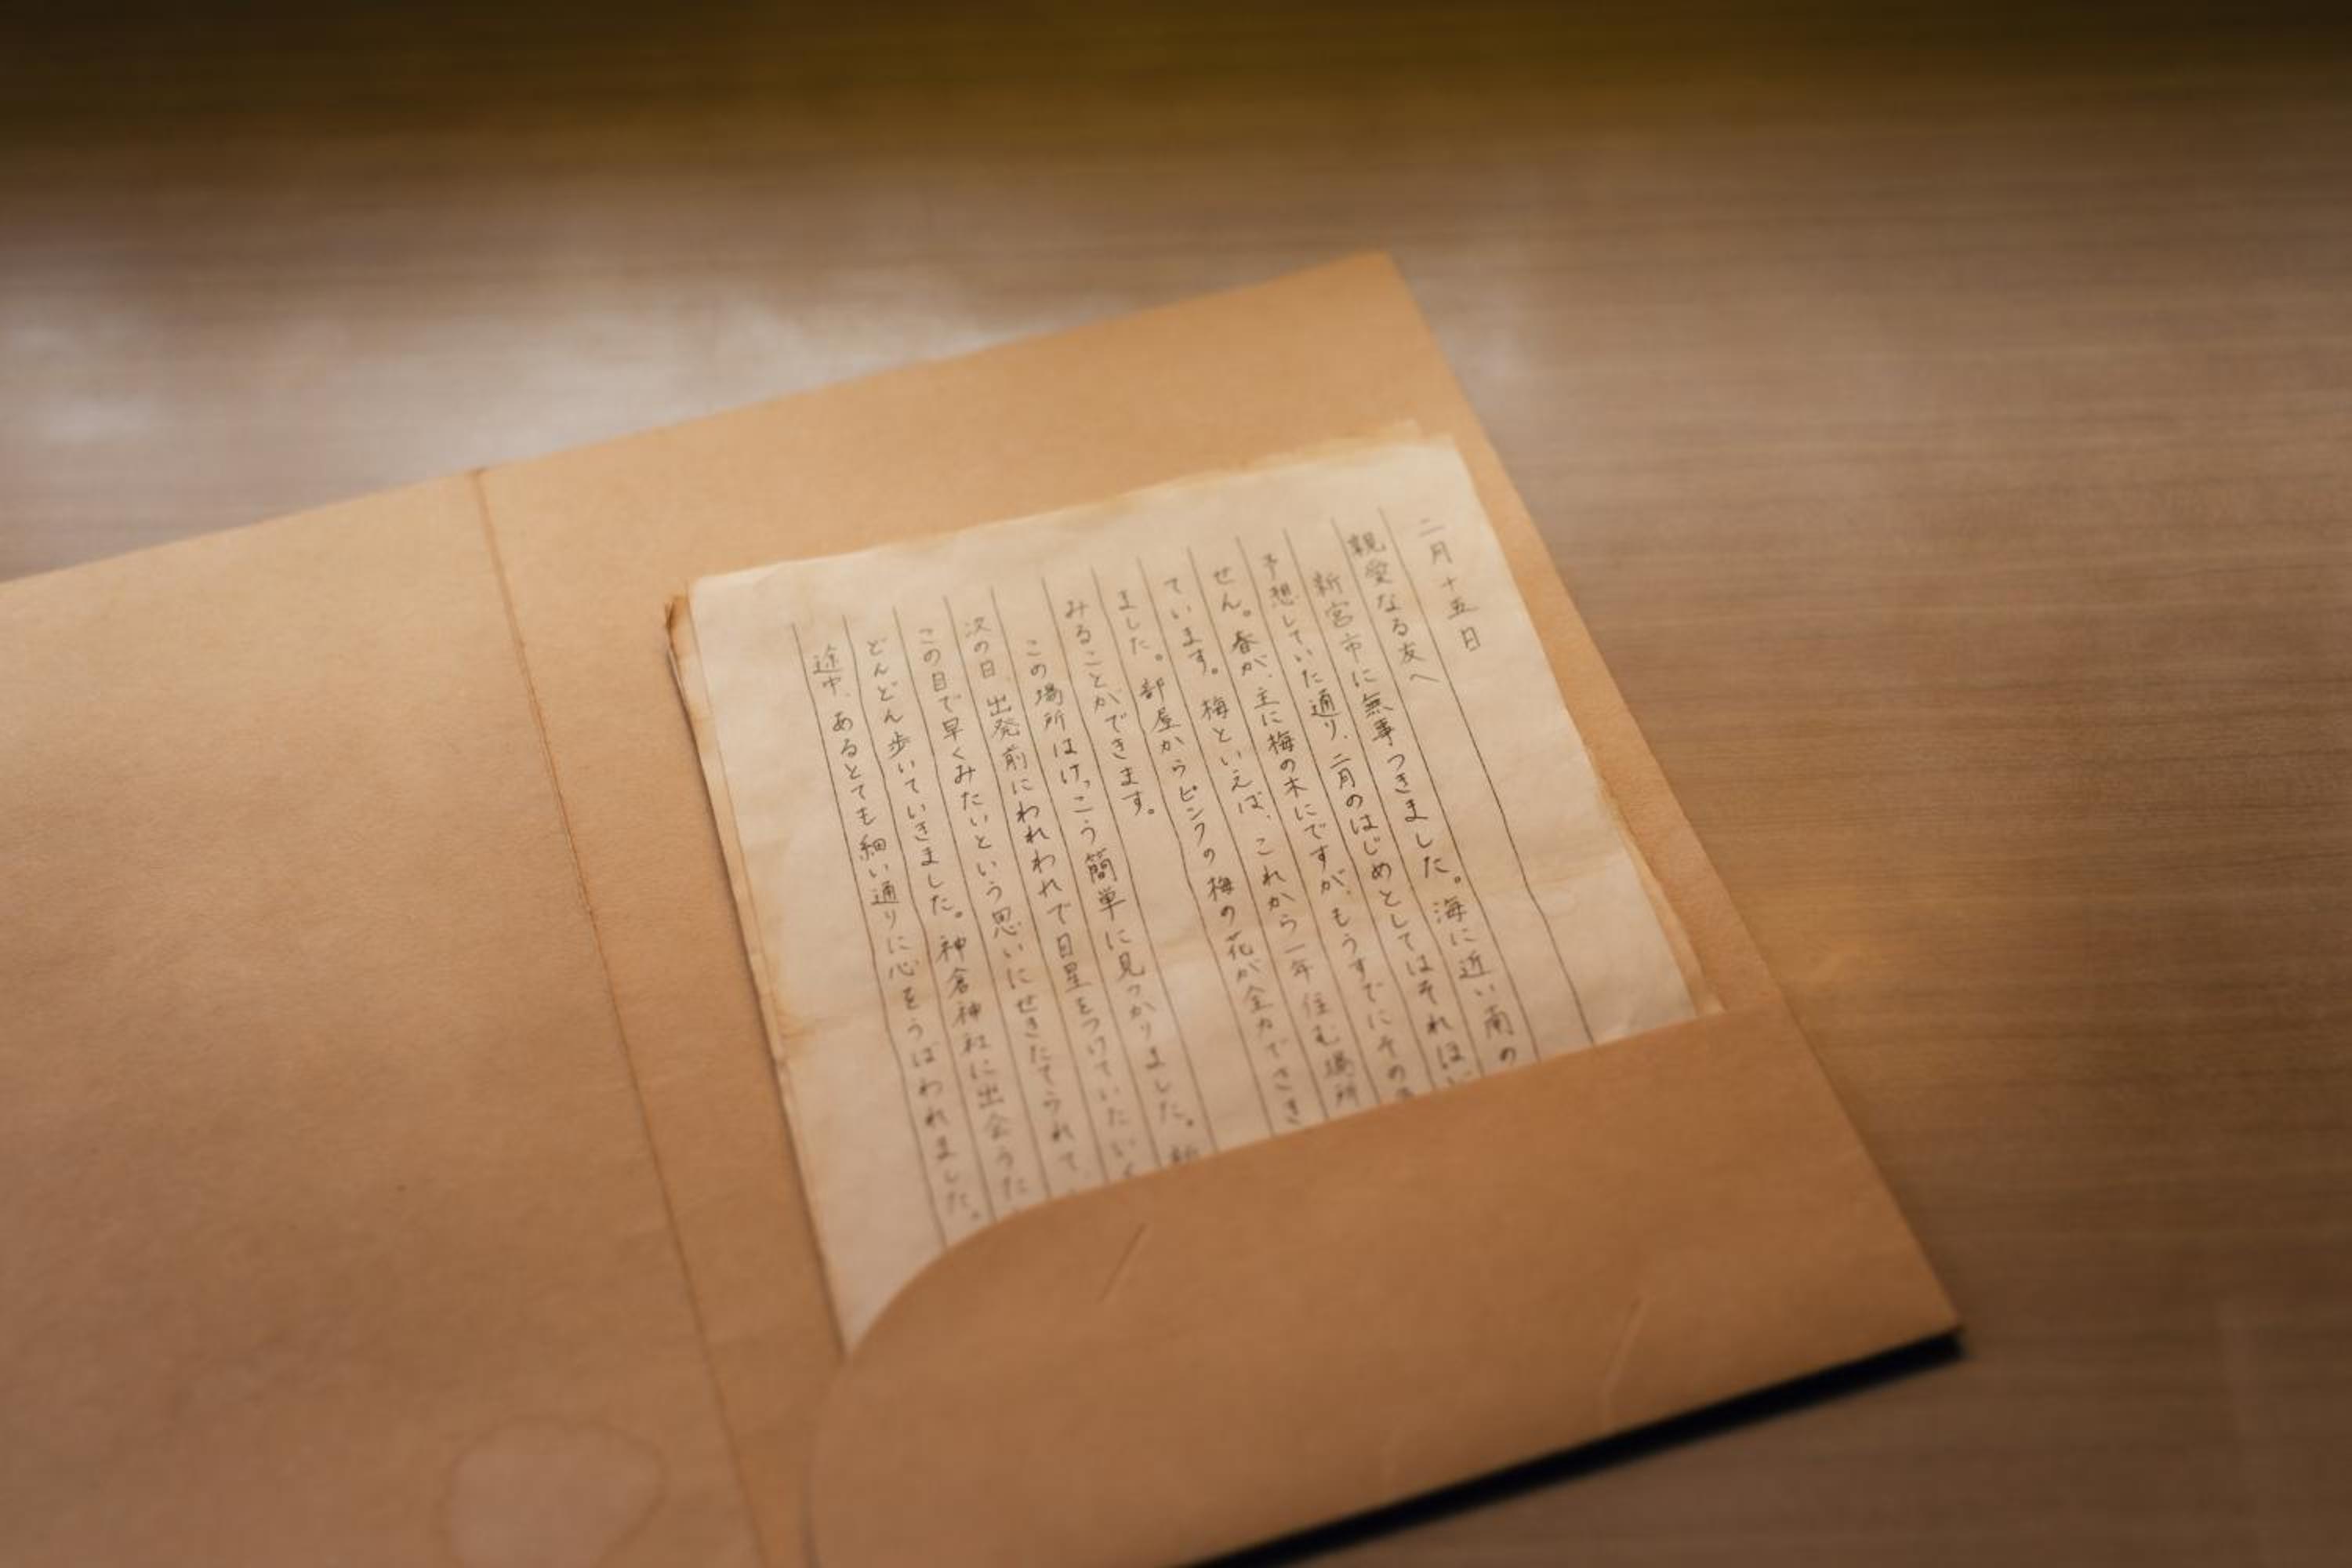 二月十五日
親愛なる友へ
新宮市に無事つきました。海に近い南の
予想していた通り、二月のはじめとしてはそれほど
せん。春が、主に梅の木にですが、もうすでにその
ています。梅といえば、これから一年住む場所
ました。部屋からピンクの梅の花が全力でさき
みることができます。
この場所はけっこう簡単に見つかりました。新
次の日、出発前にわれわれで目星をつけていたいく
この目で早くみたいという思いにせきたてられて、
どんどん歩いていきました。神倉神社に出会うた
途中、あるとても細い通りに心をうばわれました。